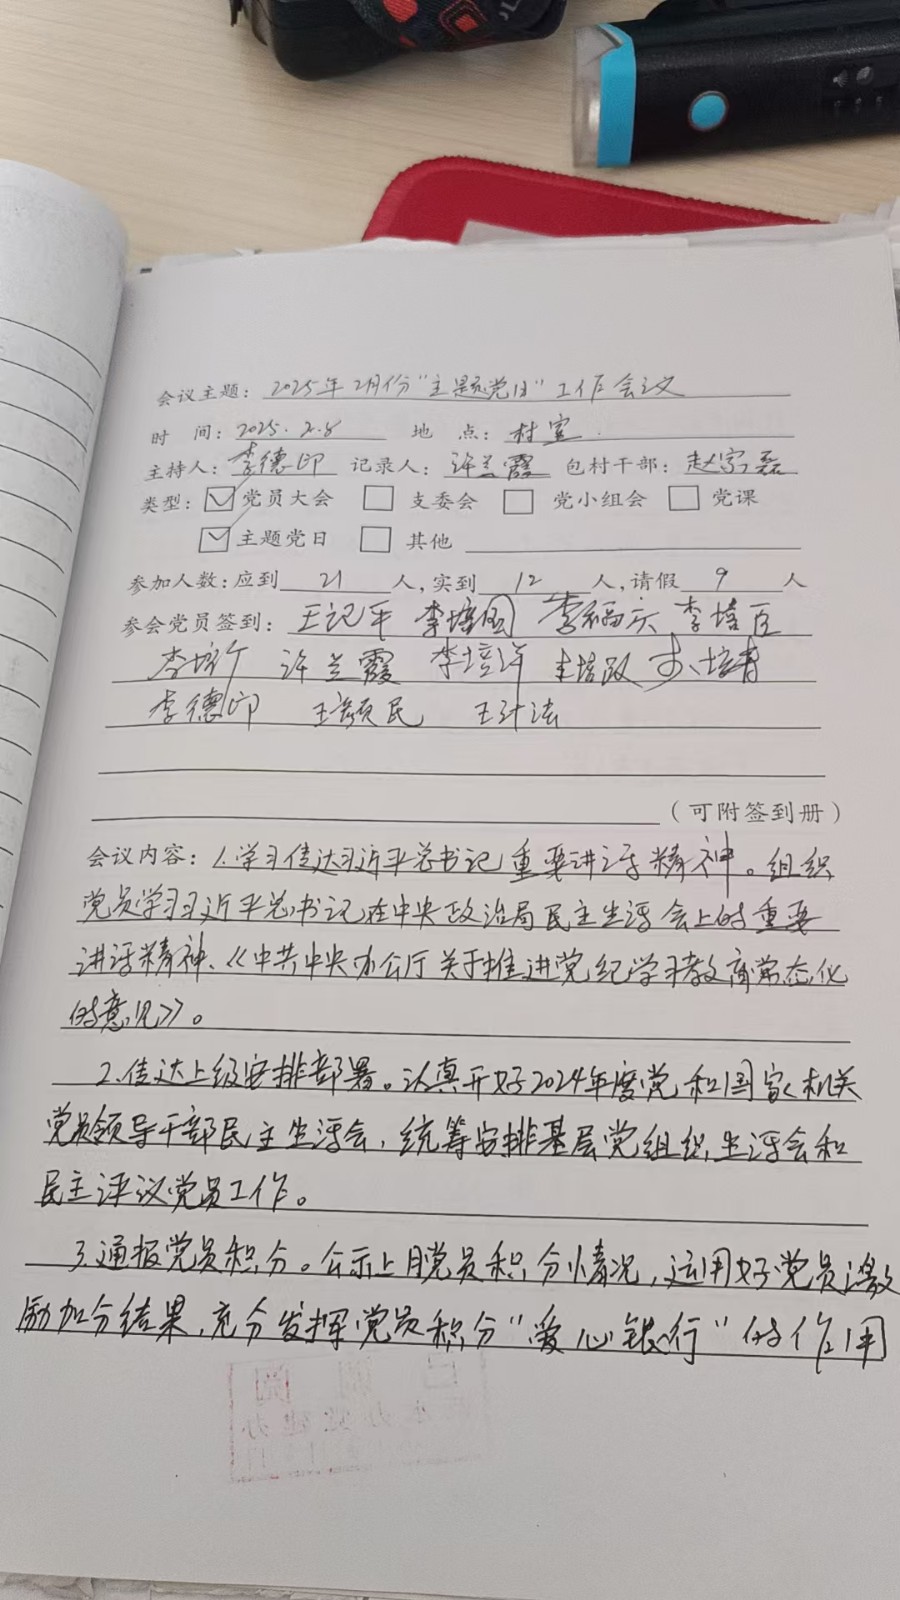 会议主题: 2025年2月份"主题党日"工作会议
时 间: 2025.2.8 地 点: 村室
主持人: 李德印 记录人: 许兰霞 包村干部: 赵家磊
类型: 党员大会 支委会 党小组会 党课
主题党日 其他
参加人数: 应到 21 人, 实到 12 人, 请假 9 人
参会党员签到: 王记平 李培国 李福庆 李培臣
李培 许兰霞 李培 培 培青
李德印 王颜民 王计法
(可附签到册)
会议内容: 1.学习传达习近平总书记重要讲话精神。组织
党员学习习近平总书记在中央政治局民主生活会上的重要
讲话精神、《中共中央办公厅关于推进党纪学习教育常态化
的意见》。
2.传达上级安排部署。认真开好2024年度党和国家机关
党员领导干部民主生活会,统筹安排基层党组织生活会和
民主评议党员工作。
3.通报党员积分。公示上月党员积分情况,运用好党员激
励加分结果,充分发挥党员积分"爱心银行"的作用